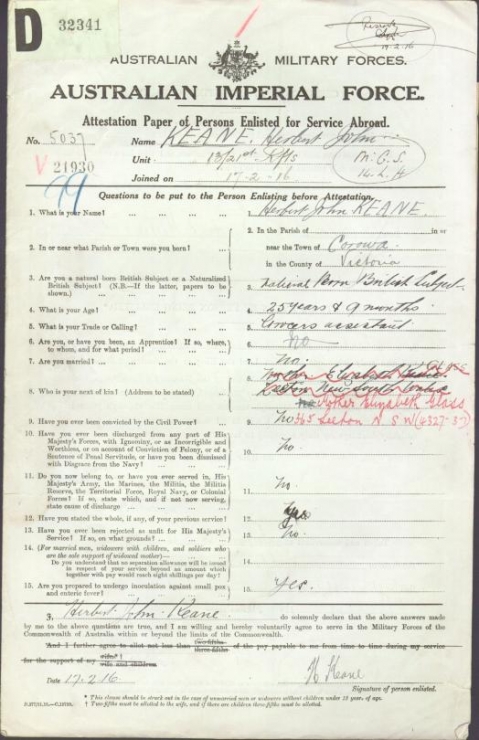 D 32341
17.2.16
AUSTRALIAN MILITARY FORCES.
AUSTRALIAN IMPERIAL FORCE.
Attestation Paper of Persons Enlisted for Service Abroad.
No. 5037 Name KEANE. Herbert John
V 21930 Unit 13/21st Rfts M.G.S.
Joined on 17-2-16
Questions to be put to the Person Enlisting before Attestation.
1. What is your Name? ... 1. Herbert John KEANE.
2. In or near what Parish or Town were you born? ... 2. In the Parish of in or
near the Town of Corowa
in the County of Victoria
3. Are you a natural born British Subject or a Naturalized
British Subject? (N.B.—If the latter, papers to be
shown.) ... 3. Natural Born British Subject
4. What is your Age? ... 4. 25 years & 9 months
5. What is your Trade or Calling? ... 5. Grocers assistant
6. Are you, or have you been, an Apprentice? If so, where,
to whom, and for what period? ... 6. no
7. Are you married? ... 7. No.
8. Who is your next of kin? (Address to be stated) 8. Mother Elizabeth
New South Wales
Mother Elizabeth Glass
9. Have you ever been convicted by the Civil Power? ... 9. No
N S W
10. Have you ever been discharged from any part of His
Majesty's Forces, with Ignominy, or as Incorrigible and
Worthless, or on account of Conviction of Felony, or of a
Sentence of Penal Servitude, or have you been dismissed
with Disgrace from the Navy? ... 10. No.
11. Do you now belong to, or have you ever served in, His
Majesty's Army, the Marines, the Militia, the Militia
Reserve, the Territorial Force, Royal Navy, or Colonial
Forces? If so, state which, and if not now serving,
state cause of discharge ... 11. No.
12. Have you stated the whole, if any, of your previous service? 12. Yes
13. Have you ever been rejected as unfit for His Majesty's
Service? If so, on what grounds? ... 13. No.
14. (For married men, widowers with children, and soldiers who
are the sole support of widowed mother)—
Do you understand that no separation allowance will be issued
in respect of your service beyond an amount which
together with pay would reach eight shillings per day? 14.
15. Are you prepared to undergo inoculation against small pox
and enteric fever? ... 15. Yes.
I, Herbert John Keane do solemnly declare that the above answers made
by me to the above questions are true, and I am willing and hereby voluntarily agree to serve in the Military Forces of the
Commonwealth of Australia within or beyond the limits of the Commonwealth.
And I further agree to allot not less than two-fifths three-fifths of the pay payable to me from time to time during my service
for the support of my wife* wife and children
Date 17.2.16 H Keane
Signature of person enlisted.
* This clause should be struck out in the case of unmarried men or widowers without children under 18 years of age.
† Two-fifths must be allotted to the wife, and if there are children three-fifths must be allotted.